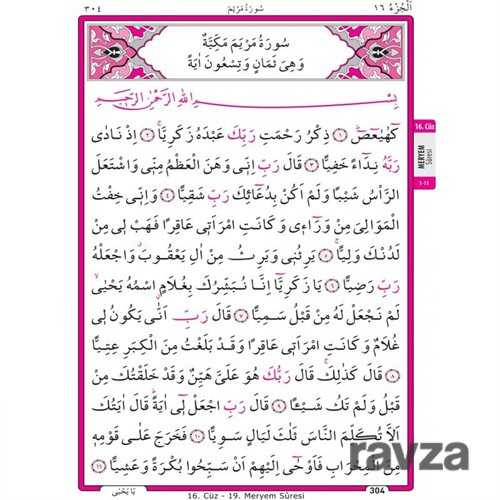 اَلْجُزْءُ ١٦
سُورَةُ مَرْيَمَ
٣٠٤
سُورَةُ مَرْيَمَ مَكِّيَّةٌ
وَهِىَ ثَمَانٍ وَتِسْعُونَ اٰيَةً
بِسْمِ اللّٰهِ الرَّحْمٰنِ الرَّحِيمِ
كٓهٰيٰعٓصٓ ﴿١﴾ ذِكْرُ رَحْمَتِ رَبِّكَ عَبْدَهُ زَكَرِيَّا ﴿٢﴾ اِذْ نَادٰى
رَبَّهُ نِدَٓاءً خَفِيًّا ﴿٣﴾ قَالَ رَبِّ اِنّٖى وَهَنَ الْعَظْمُ مِنّٖى وَاشْتَعَلَ
الرَّاْسُ شَيْبًا وَلَمْ اَكُنْ بِدُعَٓائِكَ رَبِّ شَقِيًّا ﴿٤﴾ وَاِنّٖى خِفْتُ
الْمَوَالِىَ مِنْ وَرَٓاءٖى وَكَانَتِ امْرَاَتٖى عَاقِرًا فَهَبْ لٖى مِنْ
لَدُنْكَ وَلِيًّا ﴿٥﴾ يَرِثُنٖى وَيَرِثُ مِنْ اٰلِ يَعْقُوبَ وَاجْعَلْهُ
رَبِّ رَضِيًّا ﴿٦﴾ يَا زَكَرِيَّٓا اِنَّا نُبَشِّرُكَ بِغُلَامٍ اسْمُهُ يَحْيٰى
لَمْ نَجْعَلْ لَهُ مِنْ قَبْلُ سَمِيًّا ﴿٧﴾ قَالَ رَبِّ اَنّٰى يَكُونُ لٖى
غُلَامٌ وَكَانَتِ امْرَاَتٖى عَاقِرًا وَقَدْ بَلَغْتُ مِنَ الْكِبَرِ عِتِيًّا
﴿٨﴾ قَالَ كَذٰلِكَ قَالَ رَبُّكَ هُوَ عَلَىَّ هَيِّنٌ وَقَدْ خَلَقْتُكَ مِنْ
قَبْلُ وَلَمْ تَكُ شَيْـًٔا ﴿٩﴾ قَالَ رَبِّ اجْعَلْ لٖٓى اٰيَةً قَالَ اٰيَتُكَ
اَلَّا تُكَلِّمَ النَّاسَ ثَلٰثَ لَيَالٍ سَوِيًّا ﴿١٠﴾ فَخَرَجَ عَلٰى قَوْمِهٖ
مِنَ الْمِحْرَابِ فَاَوْحٰٓى اِلَيْهِمْ اَنْ سَبِّحُوا بُكْرَةً وَعَشِيًّا ﴿١١﴾
16. Cüz
MERYEM
Sûresi
1-11
ravza
يَا يَحْيٰى
16. Cüz - 19. Meryem Sûresi
304